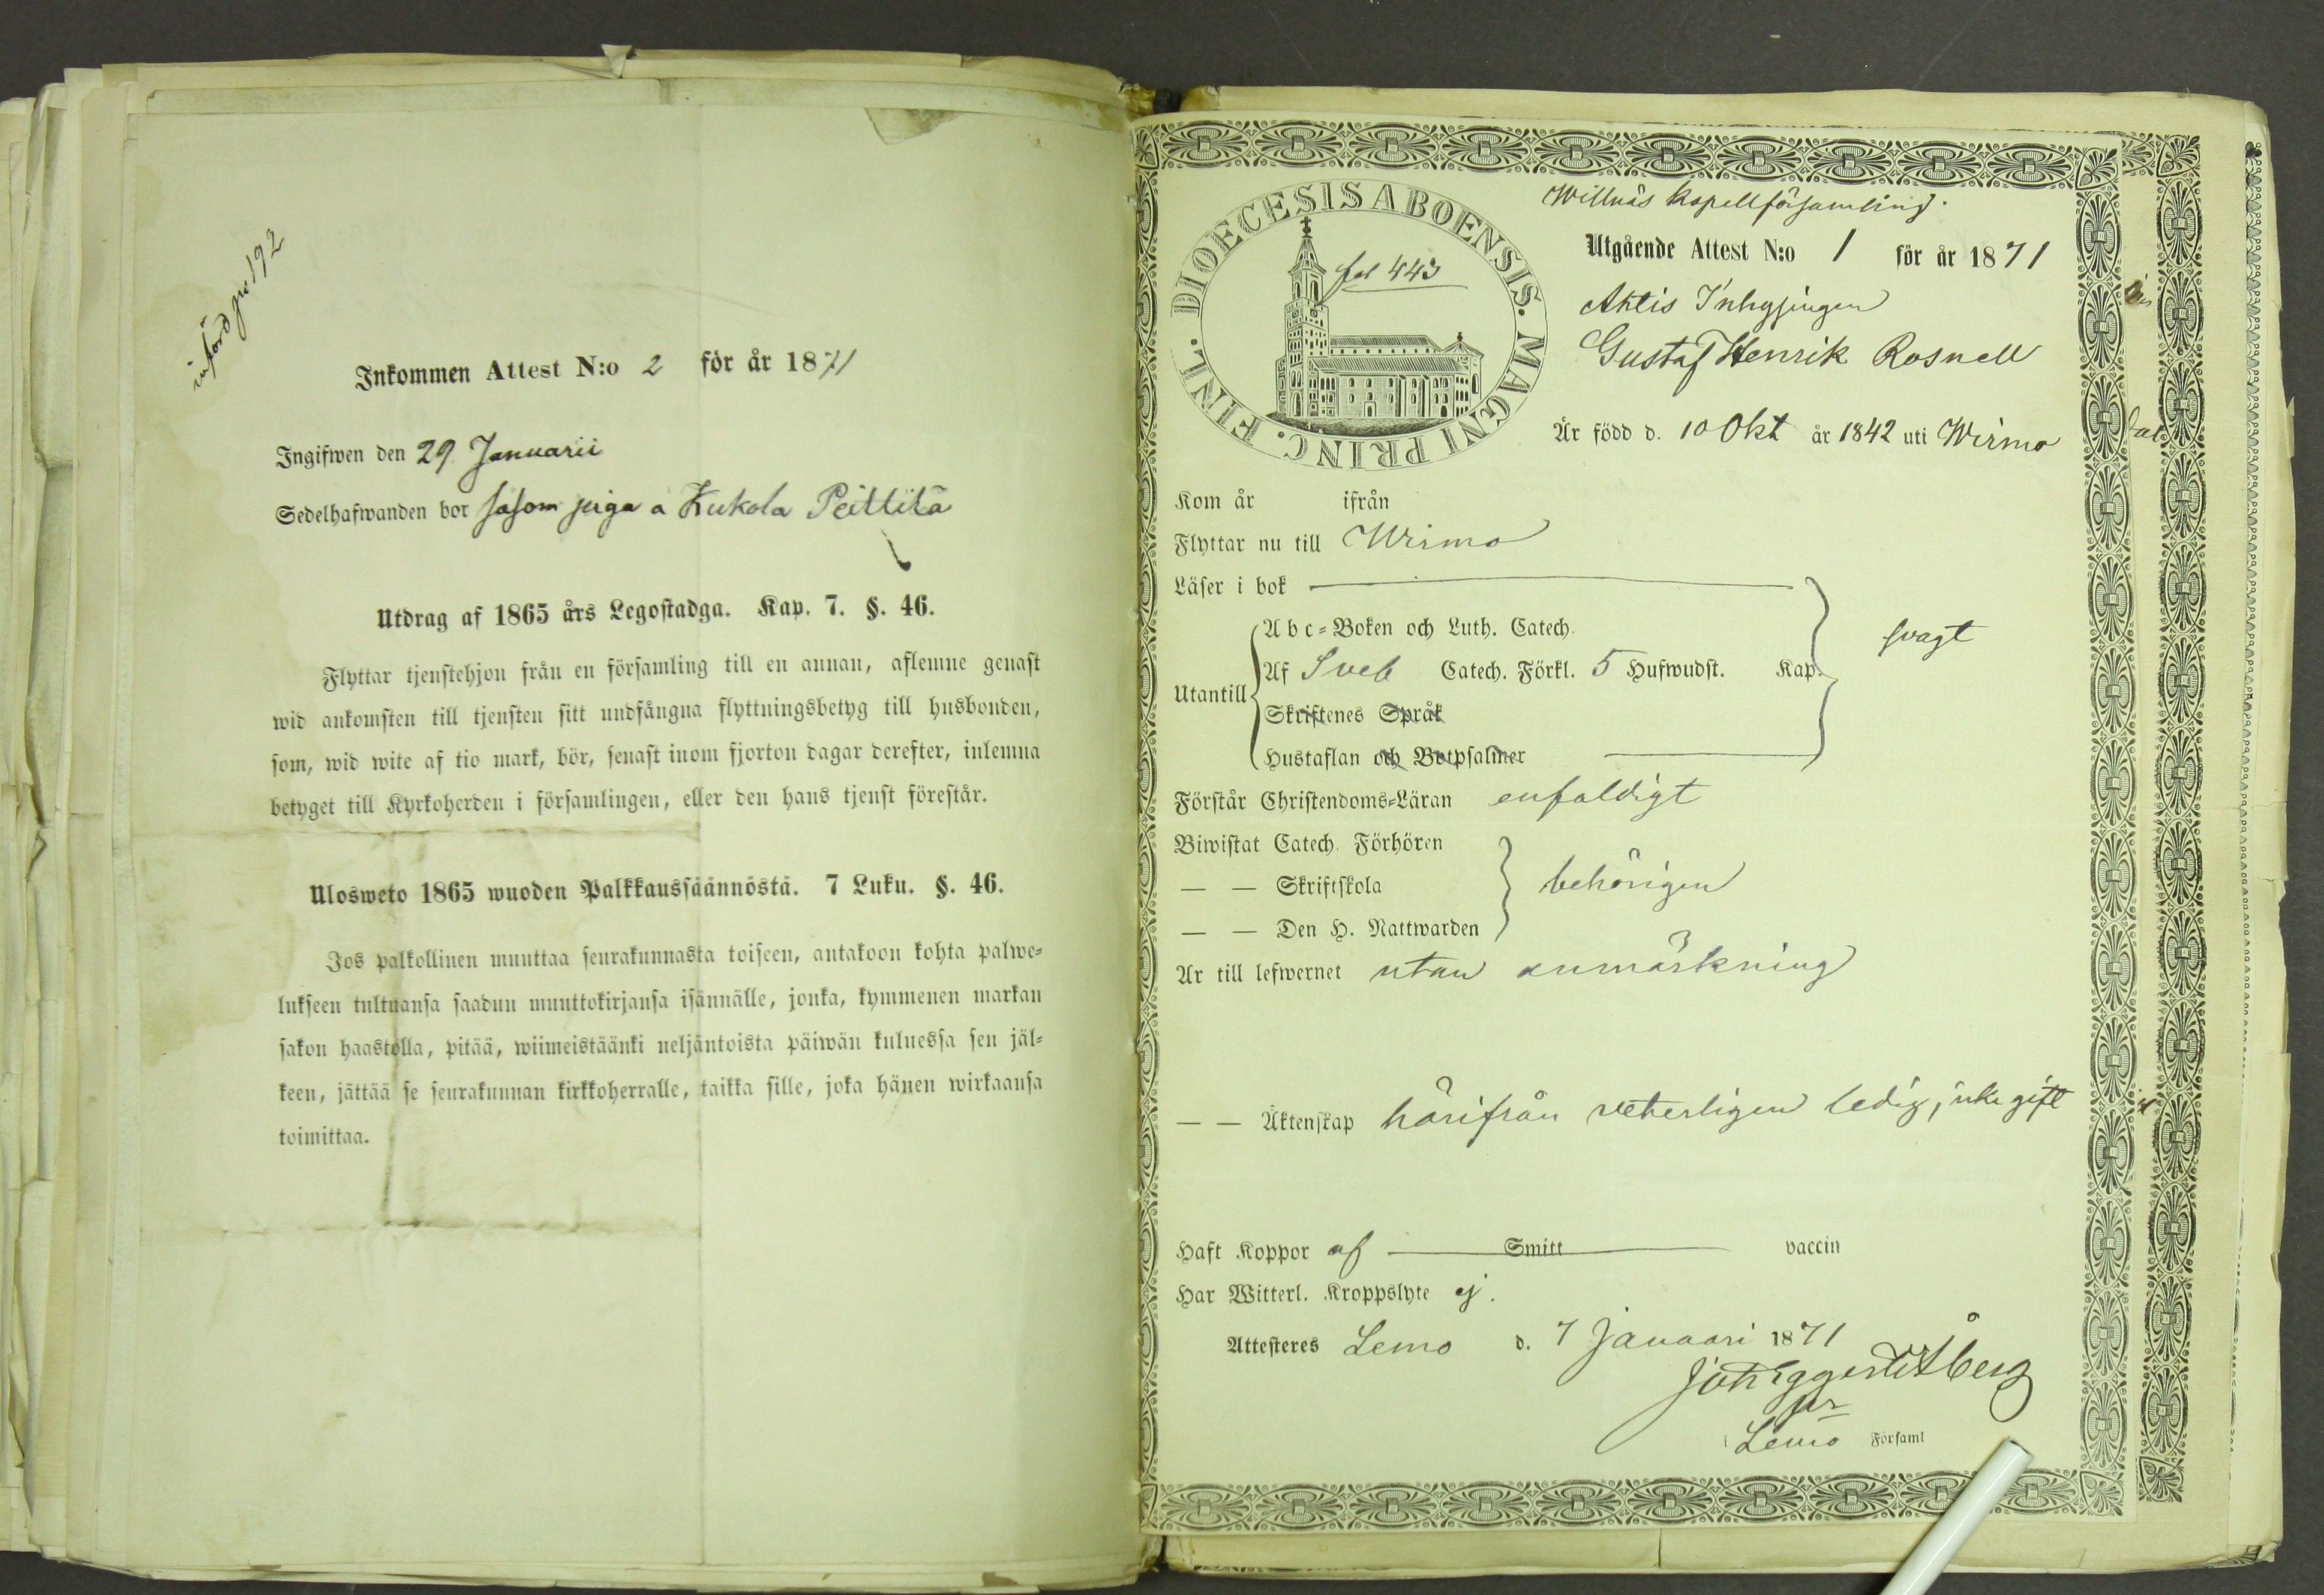 införd pv 192
Inkommen Attest N:o 2 för år 1871
Ingifwen den 29 Januarii
Sedelhafwanden bor såsom piga a Kukola Peittilä
Utdrag af 1865 års Legostadga. Kap. 7. §. 46.
Flyttar tjenstehjon från en församling till en annan, aflemne genast
wid ankomsten till tjensten sitt undfångna flyttningsbetyg till husbonden,
som, wid wite af tio mark, bör, senast inom fjorton dagar derefter, inlemna
betyget till Kyrkoherden i församlingen, eller den hans tjenst förestår.
Ulosweto 1865 wuoden Palkkaussäännöstä. 7 Luku. §. 46.
Jos palkollinen muuttaa seurakunnasta toiseen, antakoon kohta palwe-
lukseen tultuansa saadun muuttokirjansa isännälle, jonka, kymmenen markan
sakon haastolla, pitää, wiimeistäänki neljäntoista päiwän kuluessa sen jäl-
keen, jättää se seurakunnan kirkkoherralle, taikka sille, joka hänen wirkaansa
toimittaa.
DIOECESIS ABOENSIS. MAGNI PRINC. FINL.
fol 443
Willnäs Kapellförsamling.
Utgående Attest N:o 1 för år 1871
Ahtis Inhysingen
Gustaf Henrik Rosnell
Är född d. 10 Okt år 1842 uti Wirmo
Kom år ifrån
Flyttar nu till Wirmo
Läser i bok
Abc-Boken och Luth. Catech.
svagt
Utantill
Af Sveb Catech. Förkl. 5 Hufwudst. Kap.
Skriftenes Språk
Hustaflan och Botpsalmer
Förstår Christendoms-Läran enfaldigt
Biwistat Catech. Förhören
— — Skriftskola behörigen
— — Den H. Nattwarden
Är till lefwernet utan anmärkning
— — Äktenskap härifrån veterligen ledig, icke gift
Haft Koppor af Smitt vaccin
Har Witterl. Kroppslyte ej.
Attesteres Lemo d. 7 Januari 1871
Lemo Församl